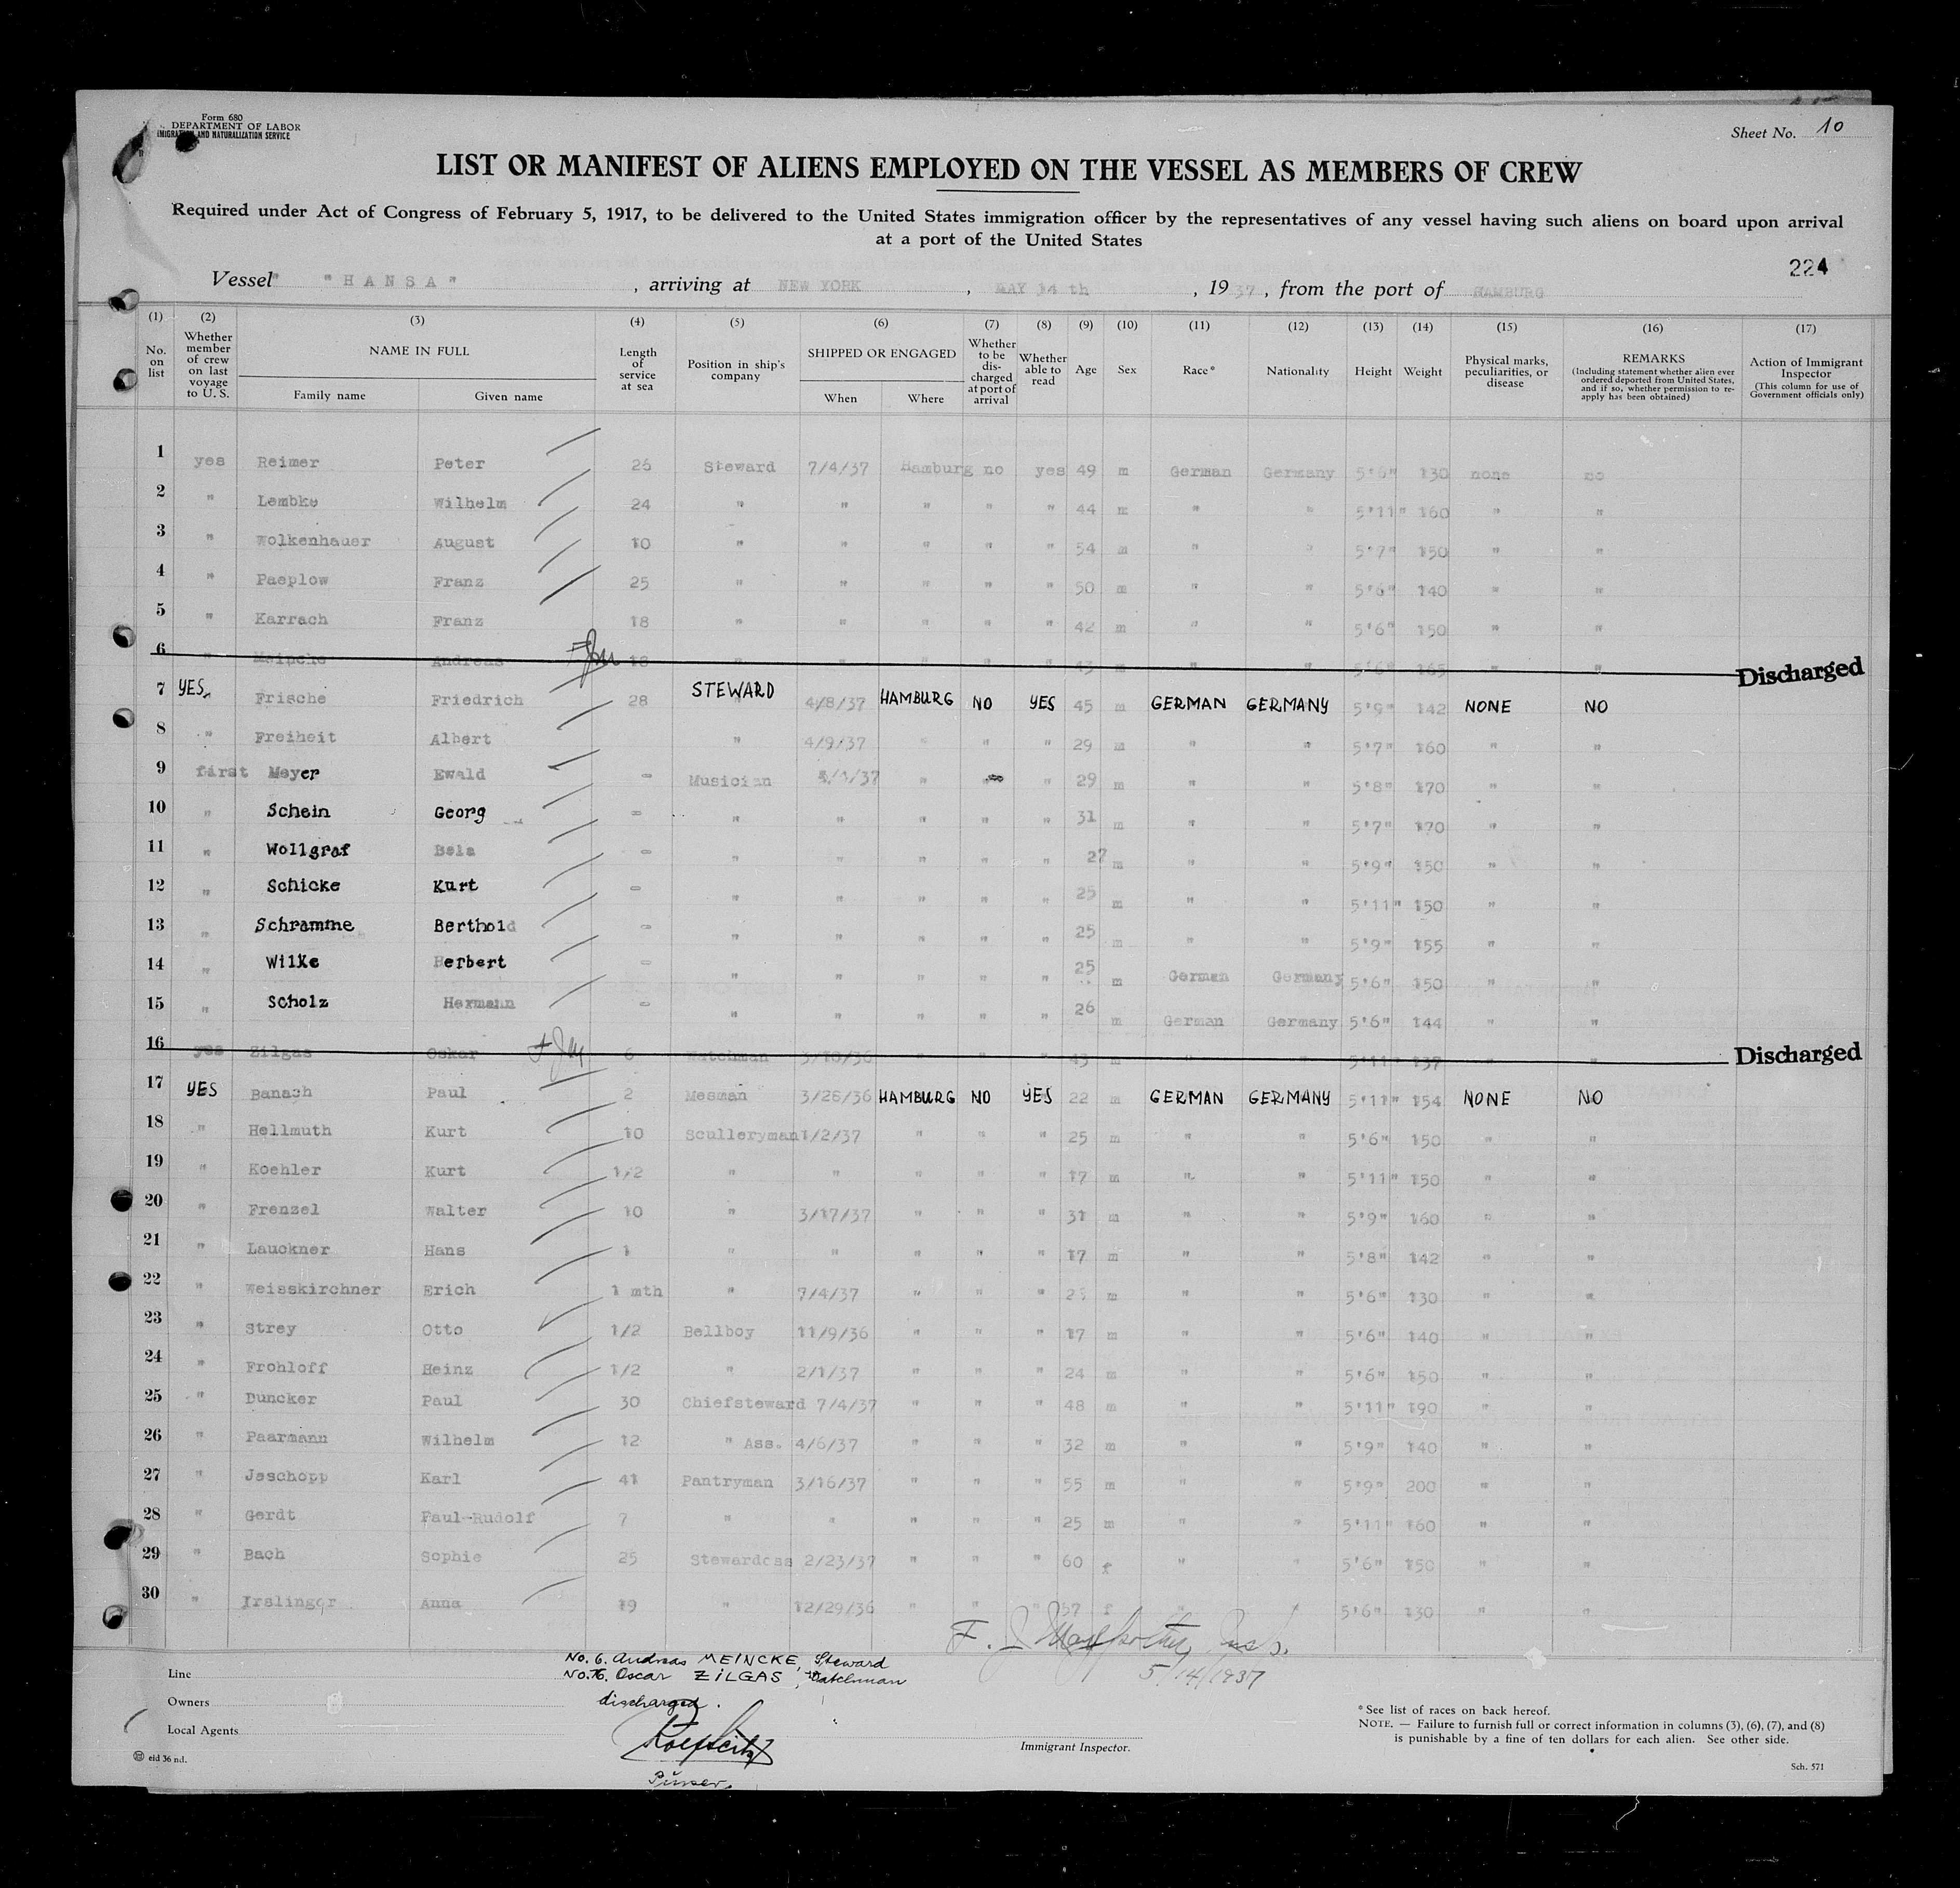 Form 680
DEPARTMENT OF LABOR
IMIGRATION AND NATURALIZATION SERVICE
Sheet No. 10
LIST OR MANIFEST OF ALIENS EMPLOYED ON THE VESSEL AS MEMBERS OF CREW
Required under Act of Congress of February 5, 1917, to be delivered to the United States immigration officer by the representatives of any vessel having such aliens on board upon arrival
at a port of the United States
224
Vessel "HANSA", arriving at NEW YORK, MAY 14 th, 1937, from the port of HAMBURG
(1) No. on list
(2) Whether member of crew on last voyage to U. S.
(3) NAME IN FULL Family name Given name
(4) Length of service at sea
(5) Position in ship's company
(6) SHIPPED OR ENGAGED When Where
(7) Whether to be discharged at port of arrival
(8) Whether able to read
(9) Age
(10) Sex
(11) Race*
(12) Nationality
(13) Height
(14) Weight
(15) Physical marks, peculiarities, or disease
(16) REMARKS (Including statement whether alien ever ordered deported from United States, and if so, whether permission to re-apply has been obtained)
(17) Action of Immigrant Inspector (This column for use of Government officials only)
1 yes Reimer Peter 26 Steward 7/4/37 Hamburg no yes 49 m German Germany 5'6" 130 none no
2 " Lembke Wilhelm 24 " " " " " 44 m " " 5'11" 160 " "
3 " Wolkenhauer August 10 " " " " " 54 m " " 5'7" 150 " "
4 " Paeplow Franz 25 " " " " " 50 m " " 5'6" 140 " "
5 " Karrach Franz 18 " " " " " 42 m " " 5'6" 150 " "
6 " Meincke Andreas 18 " " " " " 43 m " " 5'6" 165 " Discharged
7 YES Frische Friedrich 28 STEWARD 4/8/37 HAMBURG NO YES 45 m GERMAN GERMANY 5'9" 142 NONE NO
8 " Freiheit Albert " 4/9/37 " " " 29 m " " 5'7" 160 " "
9 first Meyer Ewald - Musician 5/1/37 " " " 29 m " " 5'8" 170 " "
10 " Schein Georg - " " " " " 31 m " " 5'7" 170 " "
11 " Wollgraf Bela - " " " " " 27 m " " 5'9" 150 " "
12 " Schicke Kurt - " " " " " 25 m " " 5'11" 150 " "
13 " Schramme Berthold - " " " " " 25 m " " 5'9" 155 " "
14 " Wilke Herbert - " " " " " 25 m German Germany 5'6" 150 " "
15 " Scholz Hermann - " " " " " 26 m German Germany 5'6" 144 " "
16 yes Zilgas Oskar 6 Watchman 3/10/36 " " " 43 m " " 5'11" 137 " " Discharged
17 YES Banach Paul 2 Mesman 3/28/36 HAMBURG NO YES 22 m GERMAN GERMANY 5'11" 154 NONE NO
18 " Hellmuth Kurt 10 Sculleryman 1/2/37 " " " 25 m " " 5'6" 150 " "
19 " Koehler Kurt 1/2 " " " " " 17 m " " 5'11" 150 " "
20 " Frenzel Walter 10 " 3/17/37 " " " 31 m " " 5'9" 160 " "
21 " Lauckner Hans 1 " " " " " 17 m " " 5'8" 142 " "
22 " Weisskirchner Erich 1 mth " 7/4/37 " " " m " " 5'6" 130 " "
23 " Strey Otto 1/2 Bellboy 11/9/36 " " " 17 m " " 5'6" 140 " "
24 " Frohloff Heinz 1/2 " 2/1/37 " " " 24 m " " 5'6" 150 " "
25 " Duncker Paul 30 Chiefsteward 7/4/37 " " " 48 m " " 5'11" 190 " "
26 " Paarmann Wilhelm 12 " Ass. 4/6/37 " " " 32 m " " 5'9" 140 " "
27 " Jaschopp Karl 41 Pantryman 3/16/37 " " " 55 m " " 5'9" 200 " "
28 " Gerdt Paul-Rudolf 7 " " " " " 25 m " " 5'11" 160 " "
29 " Bach Sophie 25 Stewardess 2/23/37 " " " 60 f " " 5'6" 150 " "
30 " Irslinger Anna 19 " 12/29/36 " " " 57 f " " 5'6" 130 " "
5/14/1937
No. 6. Andreas MEINCKE, Steward
No. 16. Oscar ZILGAS, Watchman
discharged.
Purser.
Line
Owners
Local Agents
eid 36 nd.
Immigrant Inspector.
* See list of races on back hereof.
NOTE. — Failure to furnish full or correct information in columns (3), (6), (7), and (8)
is punishable by a fine of ten dollars for each alien. See other side.
Sch. 571